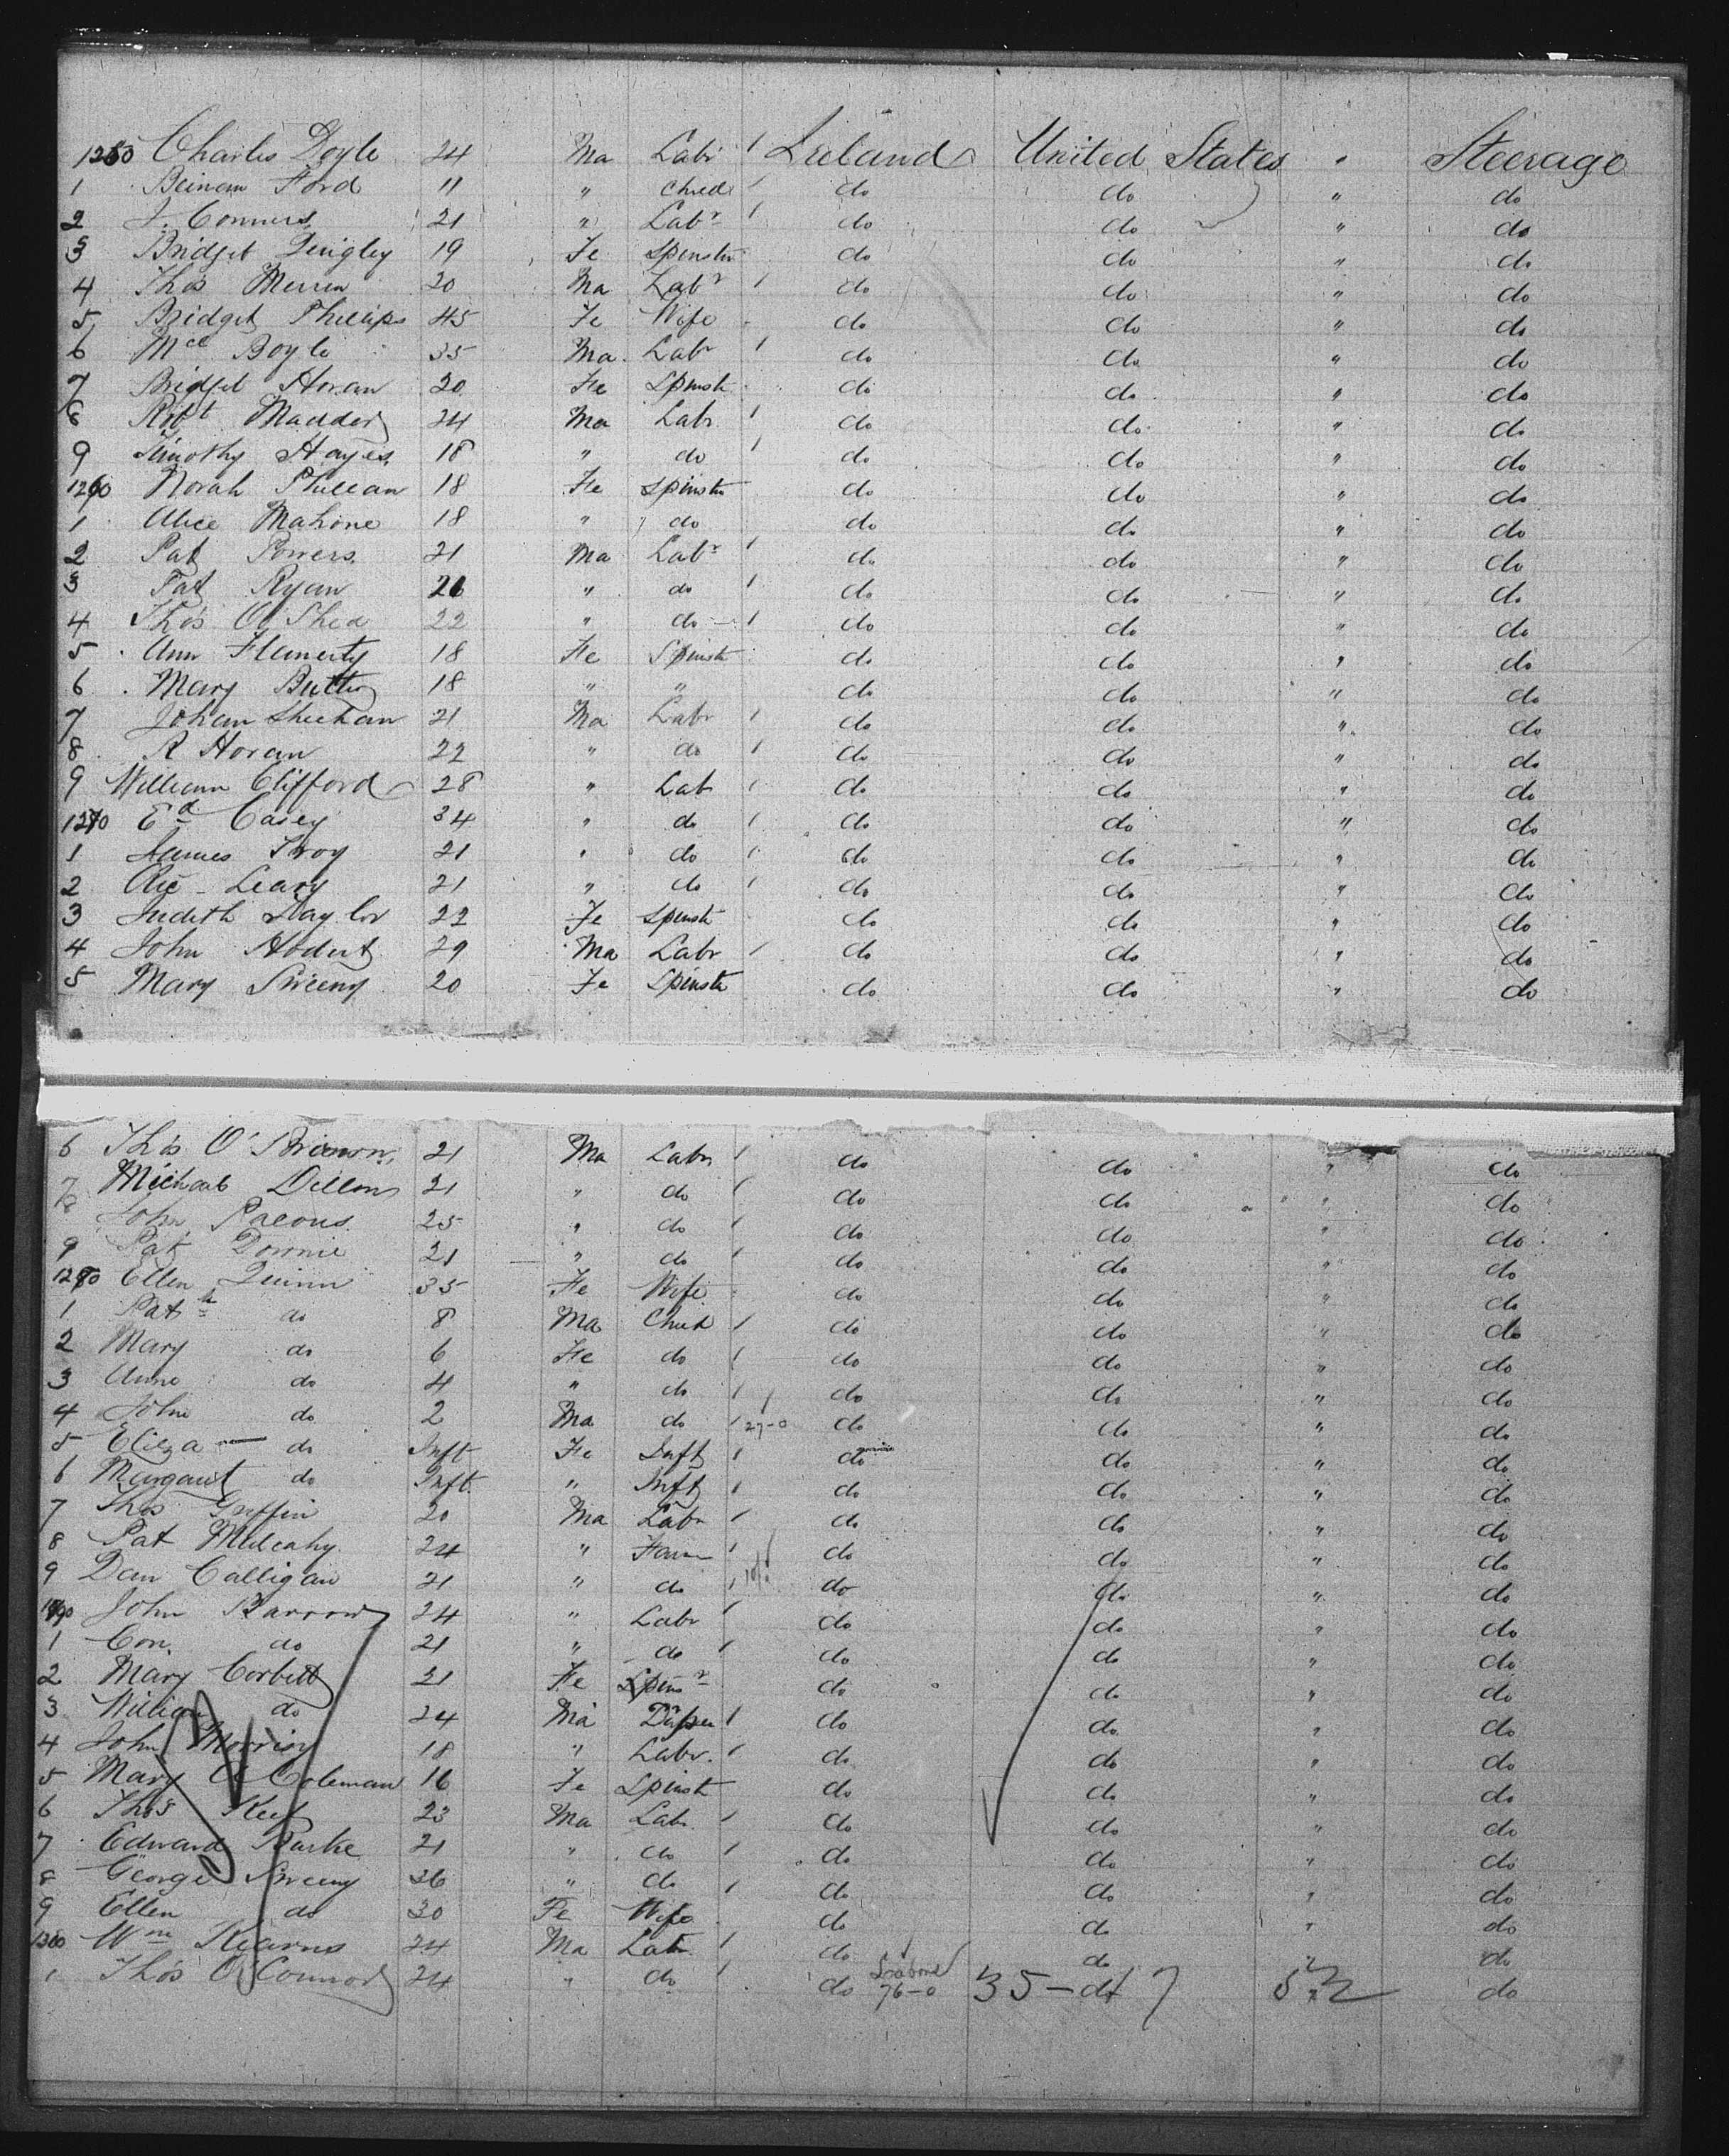 1250 Charles Doyle 24 Ma Labr Ireland United States " Steerage
1 Ford 11 " Child do do " do
2 J. Conners 21 " Labr do do " do
3 Bridget Quigley 19 Fe Spinstr do do " do
4 Thos 20 Ma Labr do do " do
5 Bridget Phillips 45 Fe Wife do do " do
6 Mcl Boyle 35 Ma Labr do do " do
7 Bridget Horan 20 Fe Spinstr do do " do
8 Robt Madden 24 Ma Labr do do " do
9 Timothy Hayes 18 " do do do " do
1260 Norah 18 Fe Spinstr do do " do
1 Alice Mahone 18 " do do do " do
2 Pat Powers 21 Ma Labr do do " do
3 Pat Ryan 26 " do do do " do
4 Thos O'Shea 22 " do do do " do
5 Ann 18 Fe Spinstr do do " do
6 Mary Butler 18 " " do do " do
7 Johan Sheehan 21 Ma Labr do do " do
8 R Horan 22 " do do do " do
9 William Clifford 28 " Lab do do " do
1270 Ed Casey 34 " do do do " do
1 James Troy 21 " do do do " do
2 Leary 21 " do do do " do
3 Judith Taylor 22 Fe Spinstr do do " do
4 John 29 Ma Labr do do " do
5 Mary Sweeny 20 Fe Spinstr do do " do
6 Thos 21 Ma Labr do do " do
7 Michael Dillon 21 " do do do " do
8 John 25 " do do do " do
9 Pat Downie 21 " do do do " do
1280 Ellen Quinn 35 Fe Wife do do " do
1 Patk do 8 Ma Child do do " do
2 Mary do 6 Fe do do do " do
3 Anne do 4 " do do do " do
4 John do 2 Ma do 27-0 do do " do
5 Eliza do Inft Fe Inft do do " do
6 Margaret do Inft " Inft do do " do
7 Thos Griffin 20 Ma Labr do do " do
8 Pat Mulcahy 24 " Farm do do " do
9 Dan Calligan 21 " do do do " do
1290 John Barrow 24 " Labr do do " do
1 Con do 21 " do do do " do
2 Mary Corbett 21 Fe Spinsr do do " do
3 William do 24 Ma do do " do
4 John Morrisy 18 " Labr do do " do
5 Mary O'Coleman 16 Fe Spinst do do " do
6 Thos Keef 23 Ma Labr do do " do
7 Edward Burke 21 " do do do " do
8 George Sweeny 36 " do do do " do
9 Ellen do 30 Fe Wife do do " do
1300 Wm Kearns 24 Ma Labr do do " do
1 Thos O'Connor 24 " do do 76-0 35 - do 7 " do